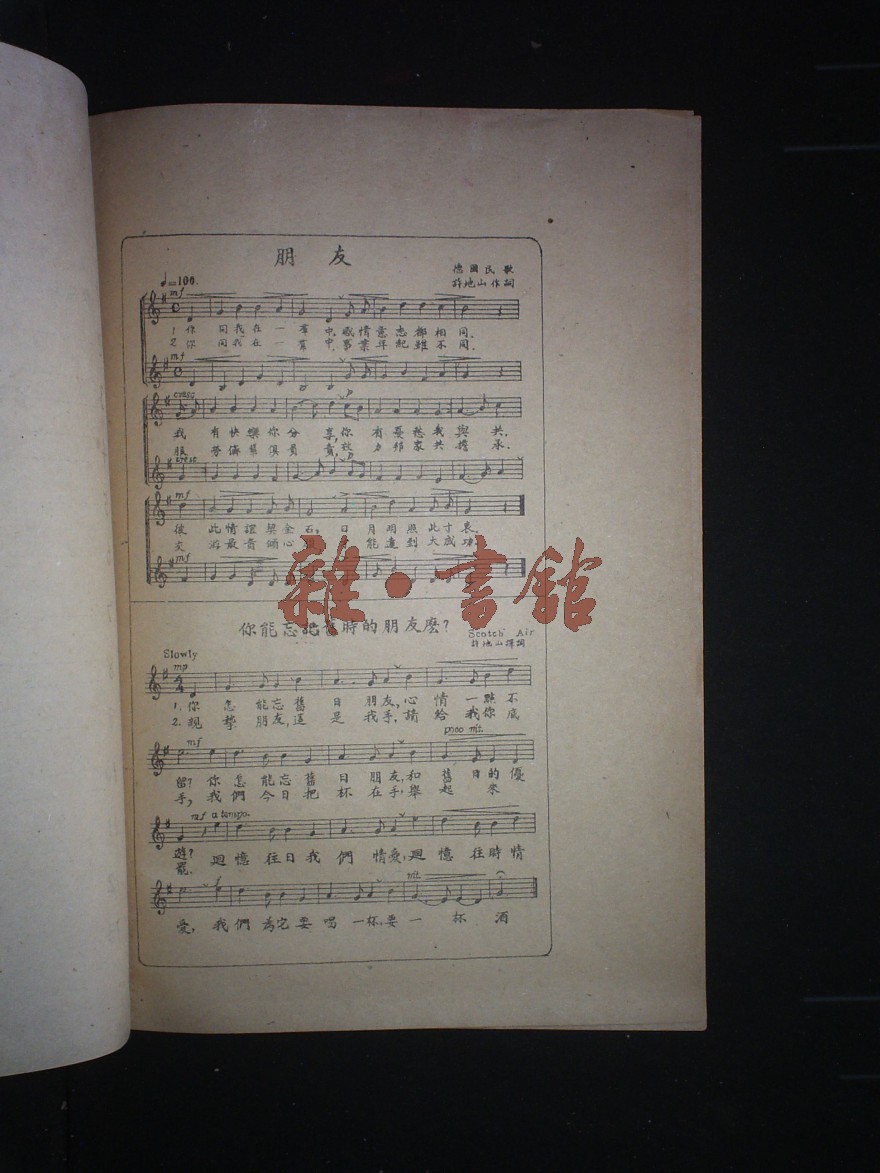 朋 友
德國民歌
♩=100.
許地山作詞
mf
1. 你 同我在 一 羣 中,感情意志都相同.
2. 你 同我在 一 羣 中,事業年紀雖不同.
mf
cresc
p
我 有快樂你分 享,你 有憂愁我與 共.
服 勞備 俱 責,效 力邦家共擔 承.
cresc
p
mf
彼 此情誼契金石, 日 月明照此寸衷.
交 游最貴傾心 能達到大成功.
mf
雜·書館
你能忘 舊時的朋友麽?
Scotch Air
許地山譯詞
Slowly
mp
1. 你 怎 能忘舊 日 朋友,心 情 一點不
2. 親 摯 朋友,這 是 我手,請 給 我你底
poco rit.
mf
留? 你怎 能忘舊 日 朋友,和 舊 日的優
手, 我們 今日把 杯 在手,舉 起 來
mf a tempo.
遊? 迴憶 往日我 們 情愛,迴憶 往時情
罷.
f
rit.
愛, 我們 為它要 喝 一杯,要 一 杯 酒